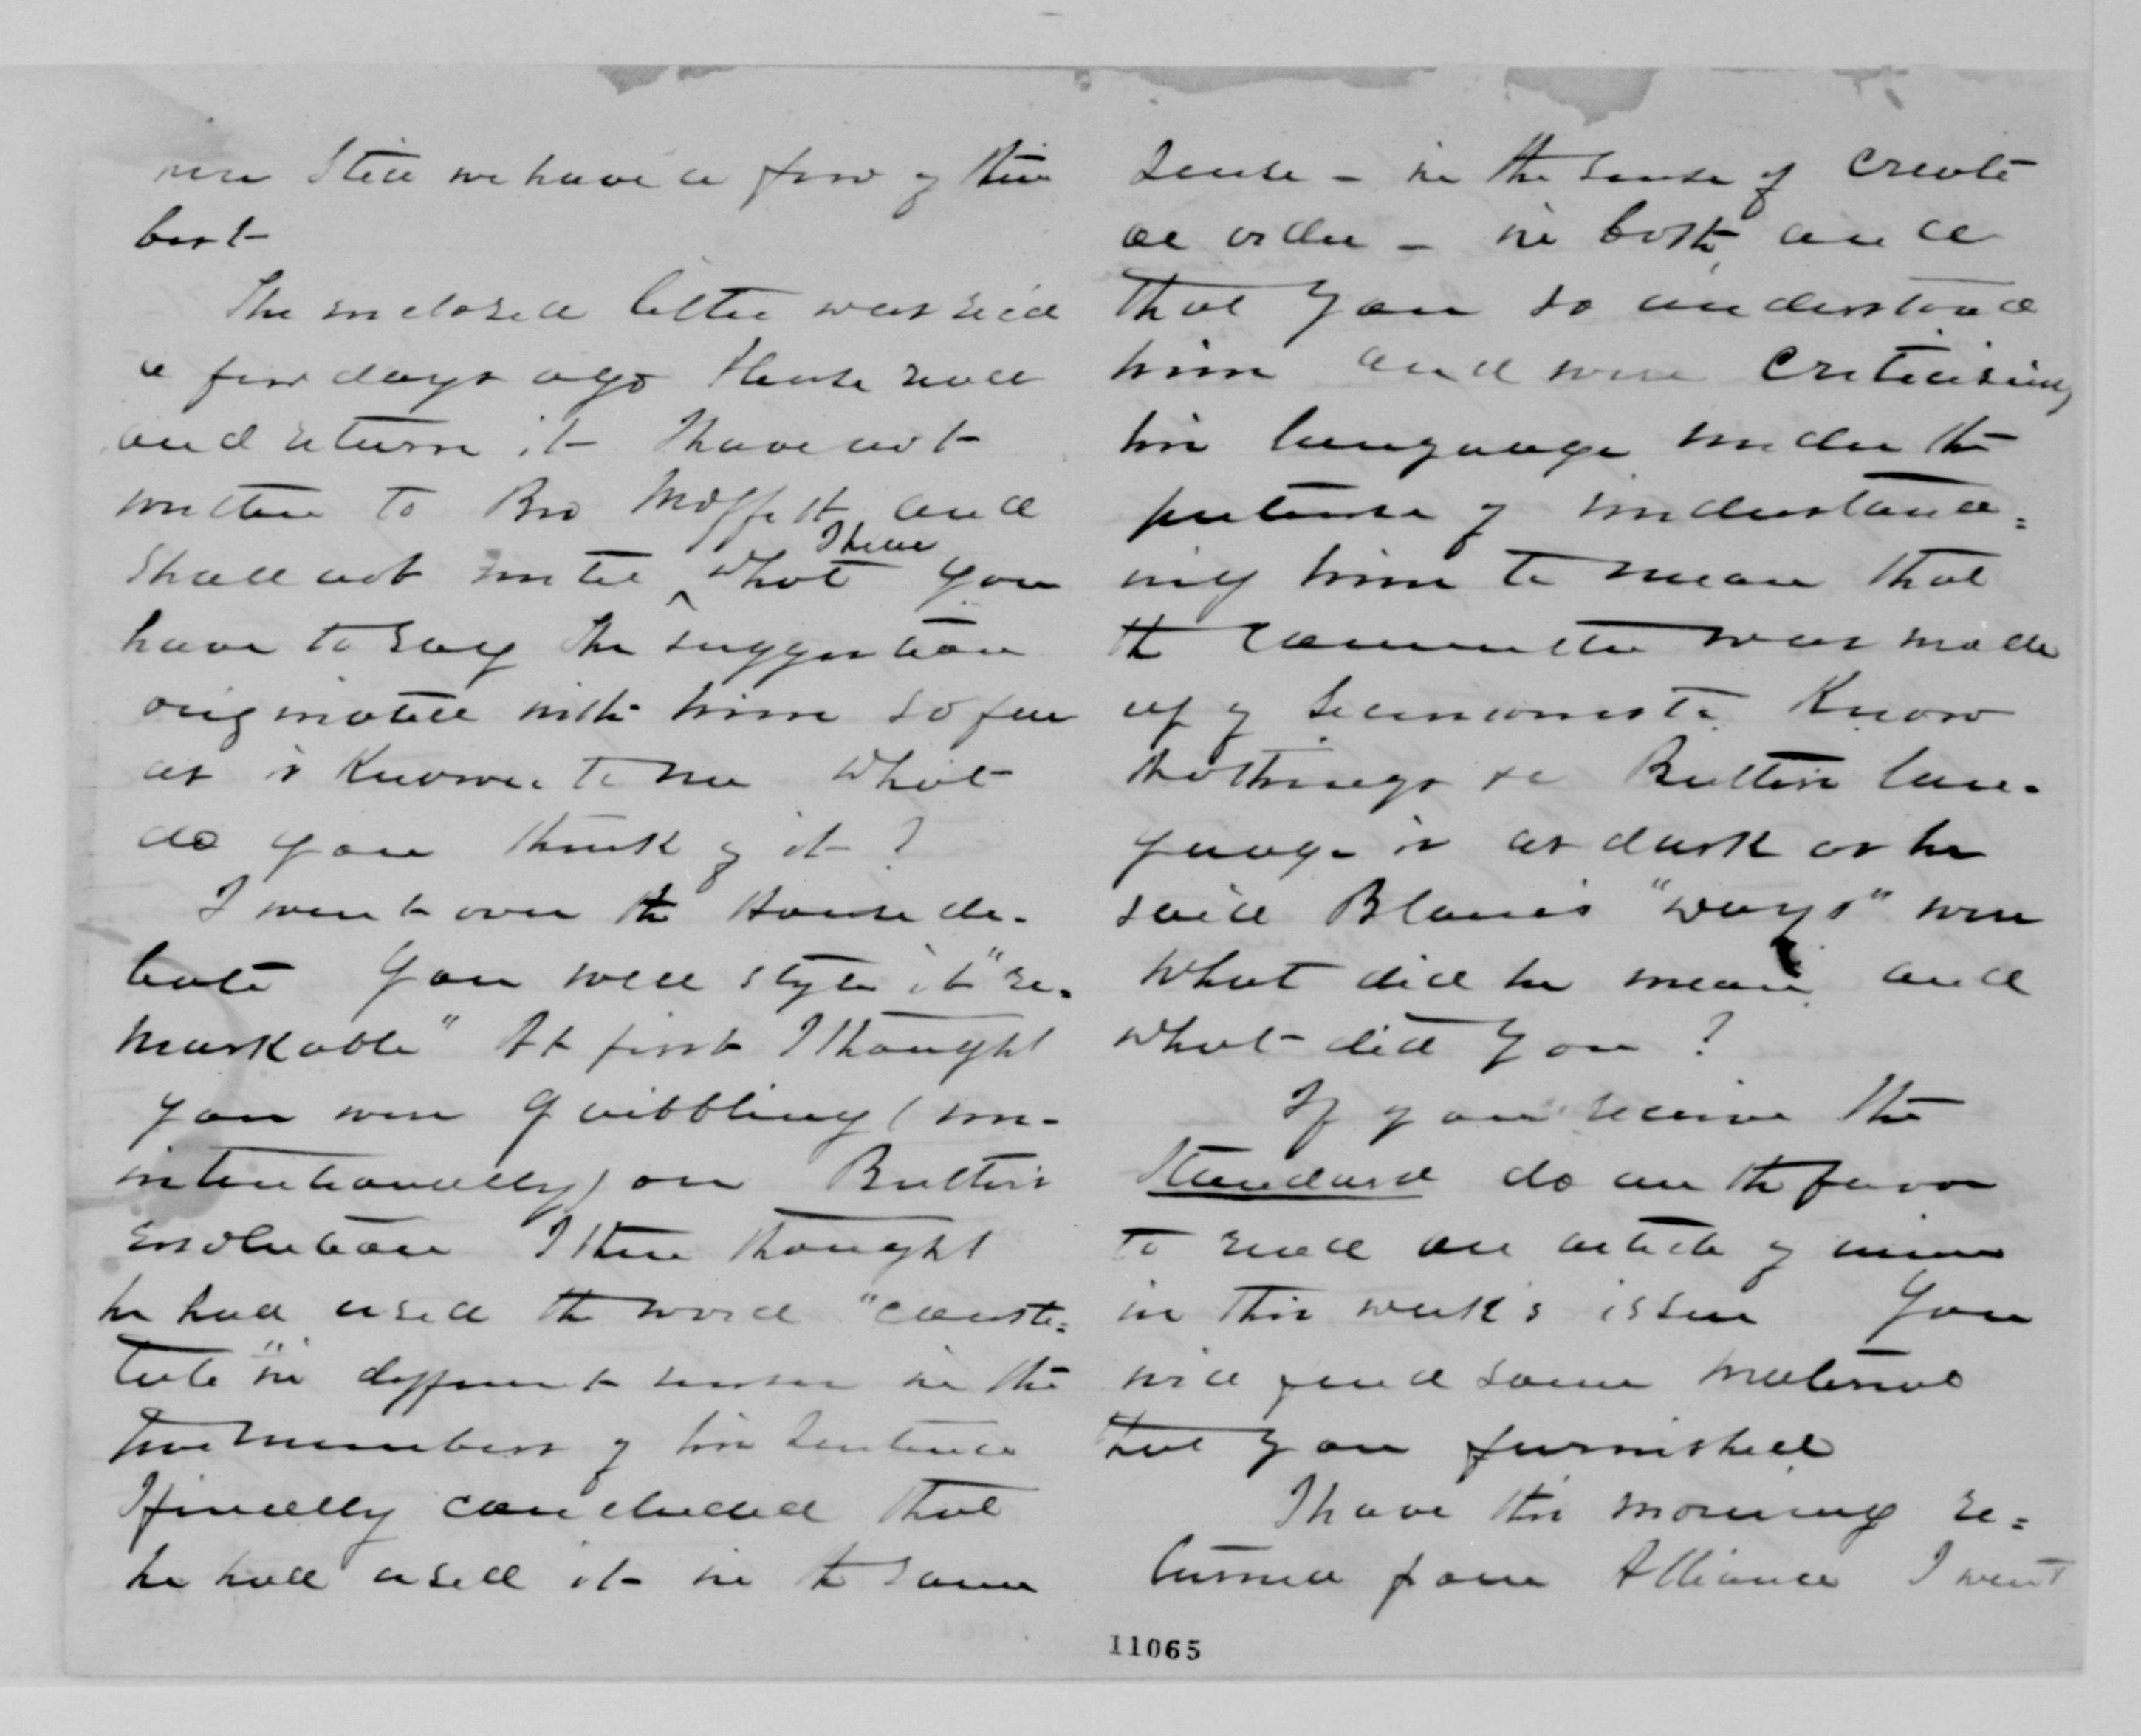 now Still we have a few of this
best
The enclosed letter was rec'd
a few days ago Please read
and return it I have not
written to Bro Moffett and
I hear
Shall not until what you
have to say The suggestion
originated with him so far
as is Known to me What
do you think of it ?
I went over the House de-
bate You well style it "re-
markable" At first I thought
you were quibbling (un-
intentionally) on Butler's
resolution I then thought
he had used the word "consti-
tute" in different senses in the
two members of his Sentence
I finally concluded that
he had used it in the same
Sense - in the sense of create
or order - in both and
that you so understood
him and were Criticising
his language under the
pretense of understand-
ing him to mean that
the Committee was made
up of Know
Nothings &c Butler's lan-
guage is as dark as he
said Blaine's "ways" were
What did he mean and
What did you ?
If you receive the
Standard do me the favor
to read an article of mine
in this week's issue You
will find some material
that you furnished
I have this morning re-
turned from Alliance I went
11065